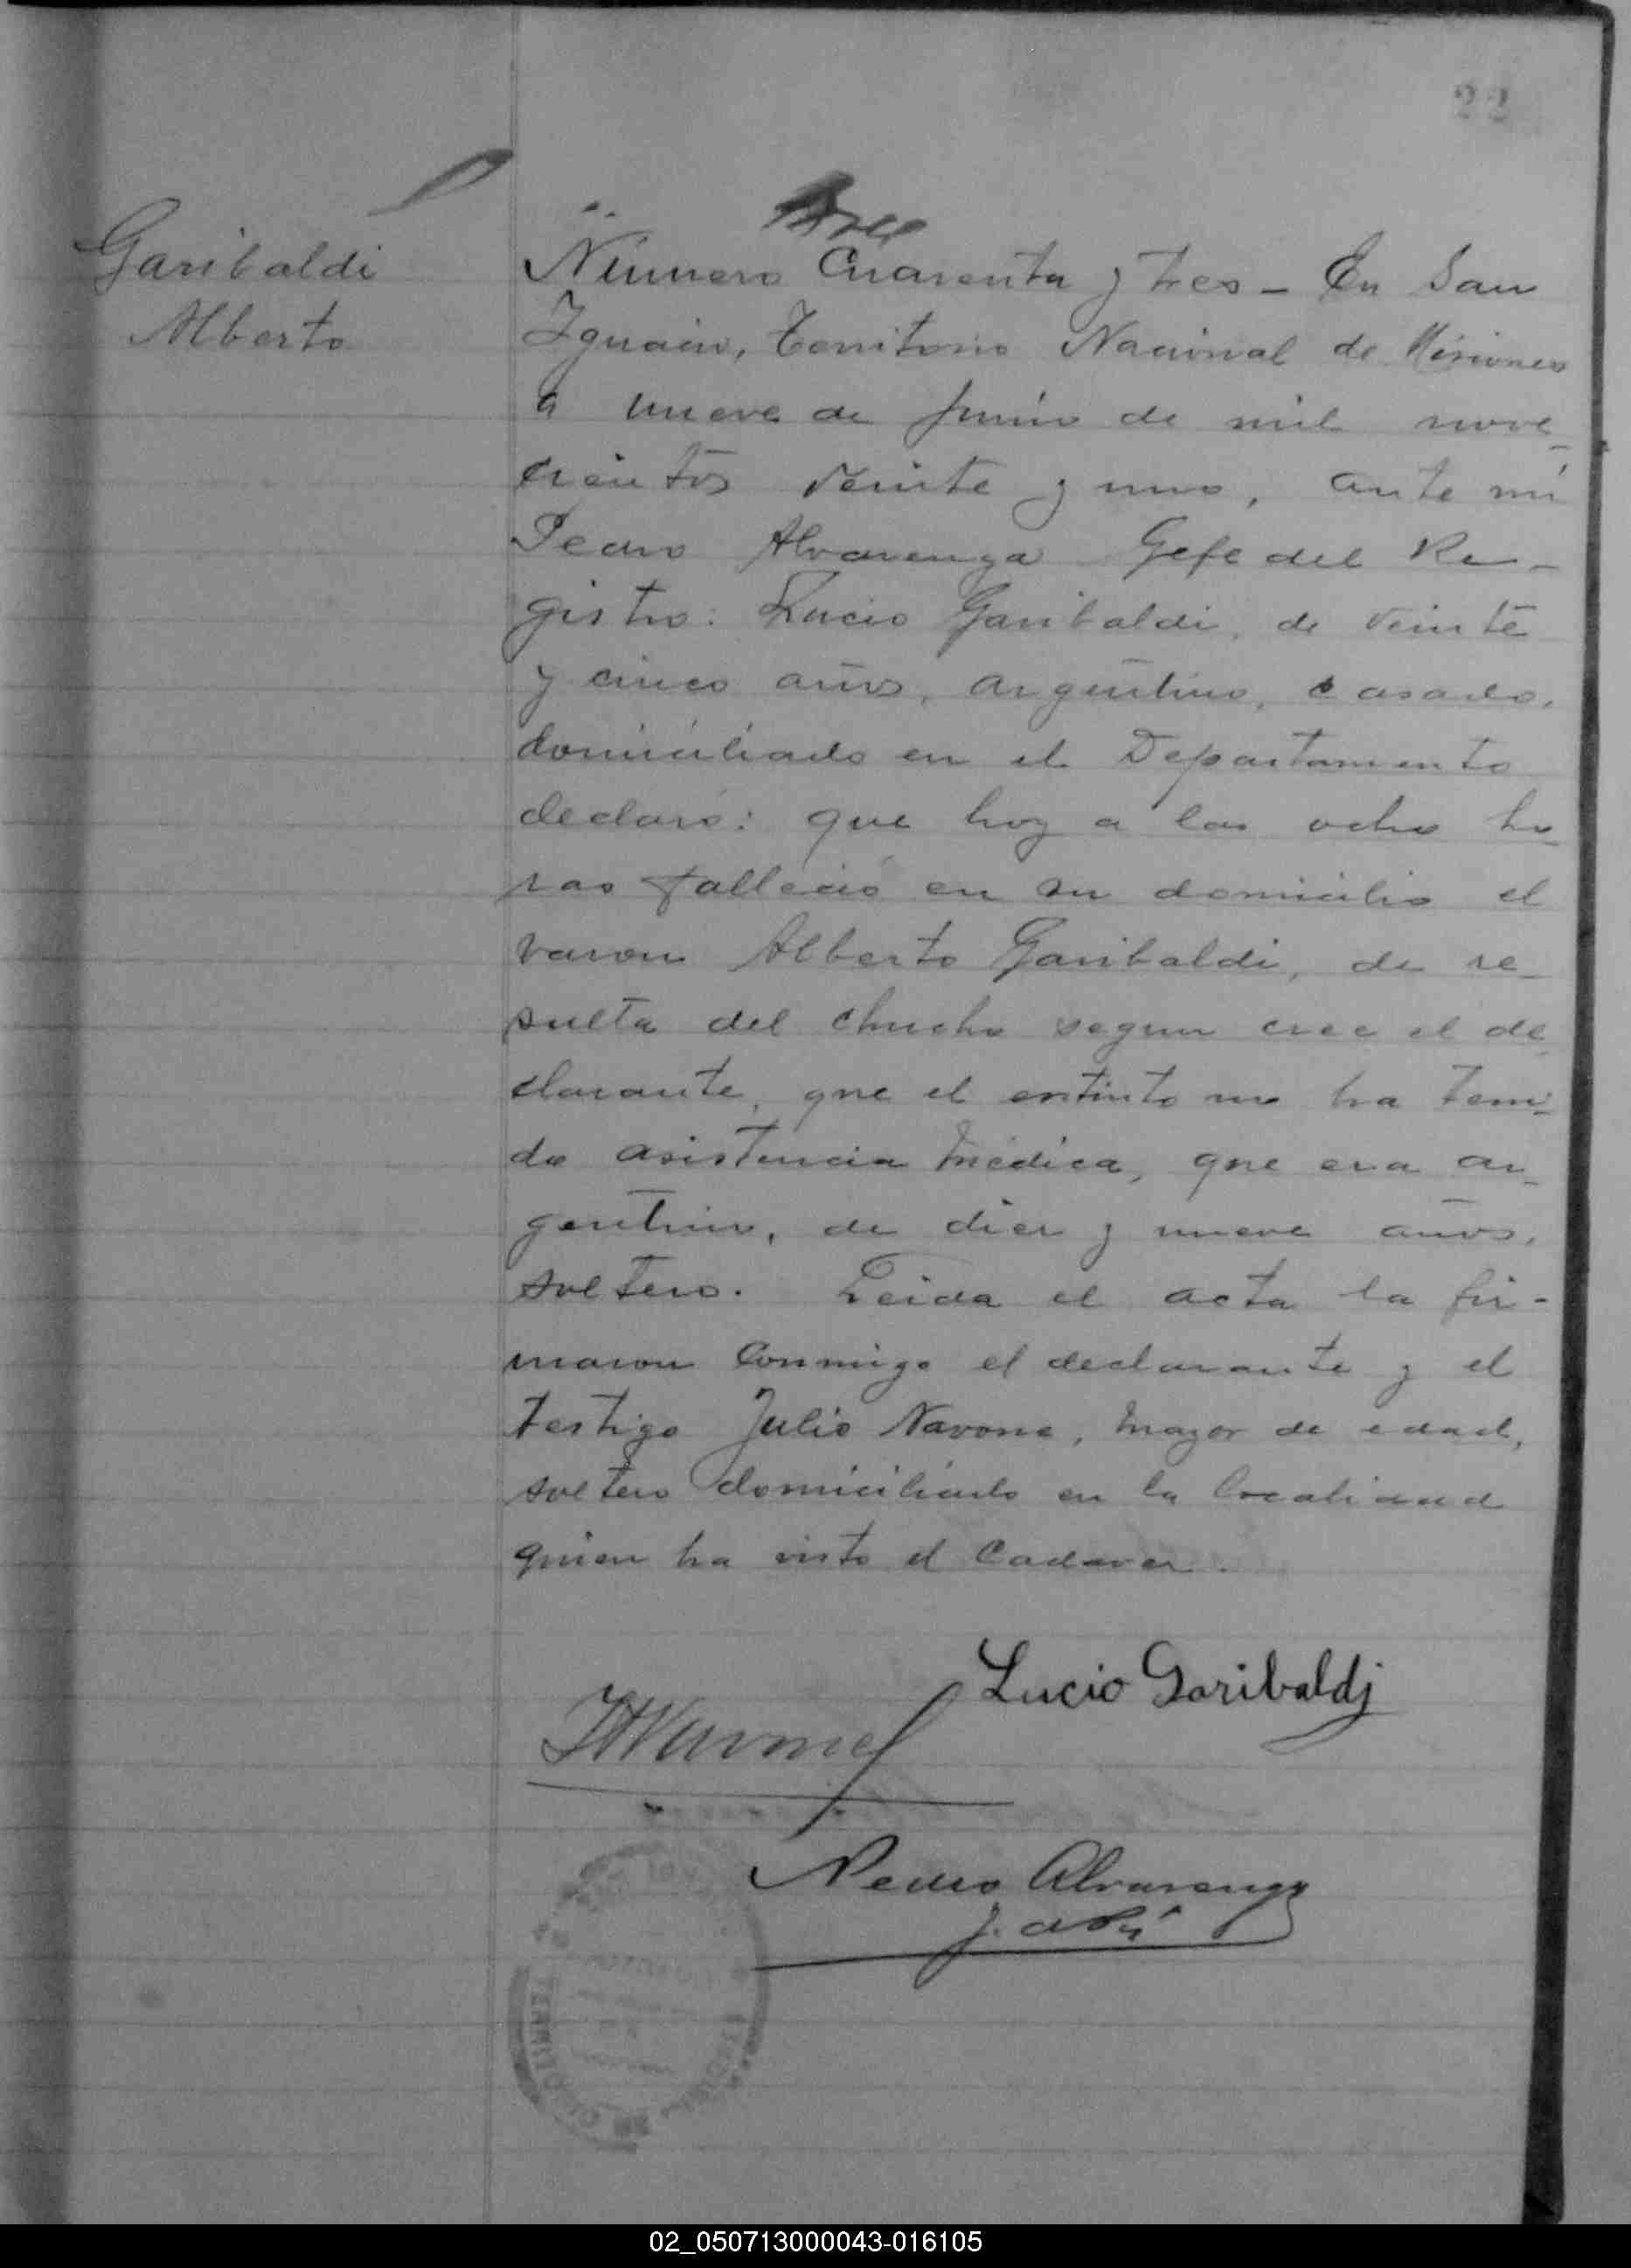 22
Garibaldi
Alberto
Número Cuarenta y tres - En San
Ignacio, Territorio Nacional de Misiones
a nueve de Junio de mil nove-
cientos veinte y uno, ante mi
Pedro Alvarenga Gefe del Re-
gistro: Lucio Garibaldi, de veinte
y cinco años, argentino, casado,
domiciliado en el Departamento
declaró: que hoy a las ocho ho-
ras falleció en su domicilio el
varon Alberto Garibaldi, de re-
sulta del chucho segun cree el de-
clarante, que el extinto no ha teni-
do asistencia médica, que era ar-
gentino, de diez y nueve años,
soltero. Leida el acta la fir-
maron conmigo el declarante y el
testigo Julio Navone, mayor de edad,
soltero domiciliado en la localidad
quien ha visto el cadaver.
Lucio Garibaldi
Pedro Alvarenga
TERRITO
02_050713000043-016105